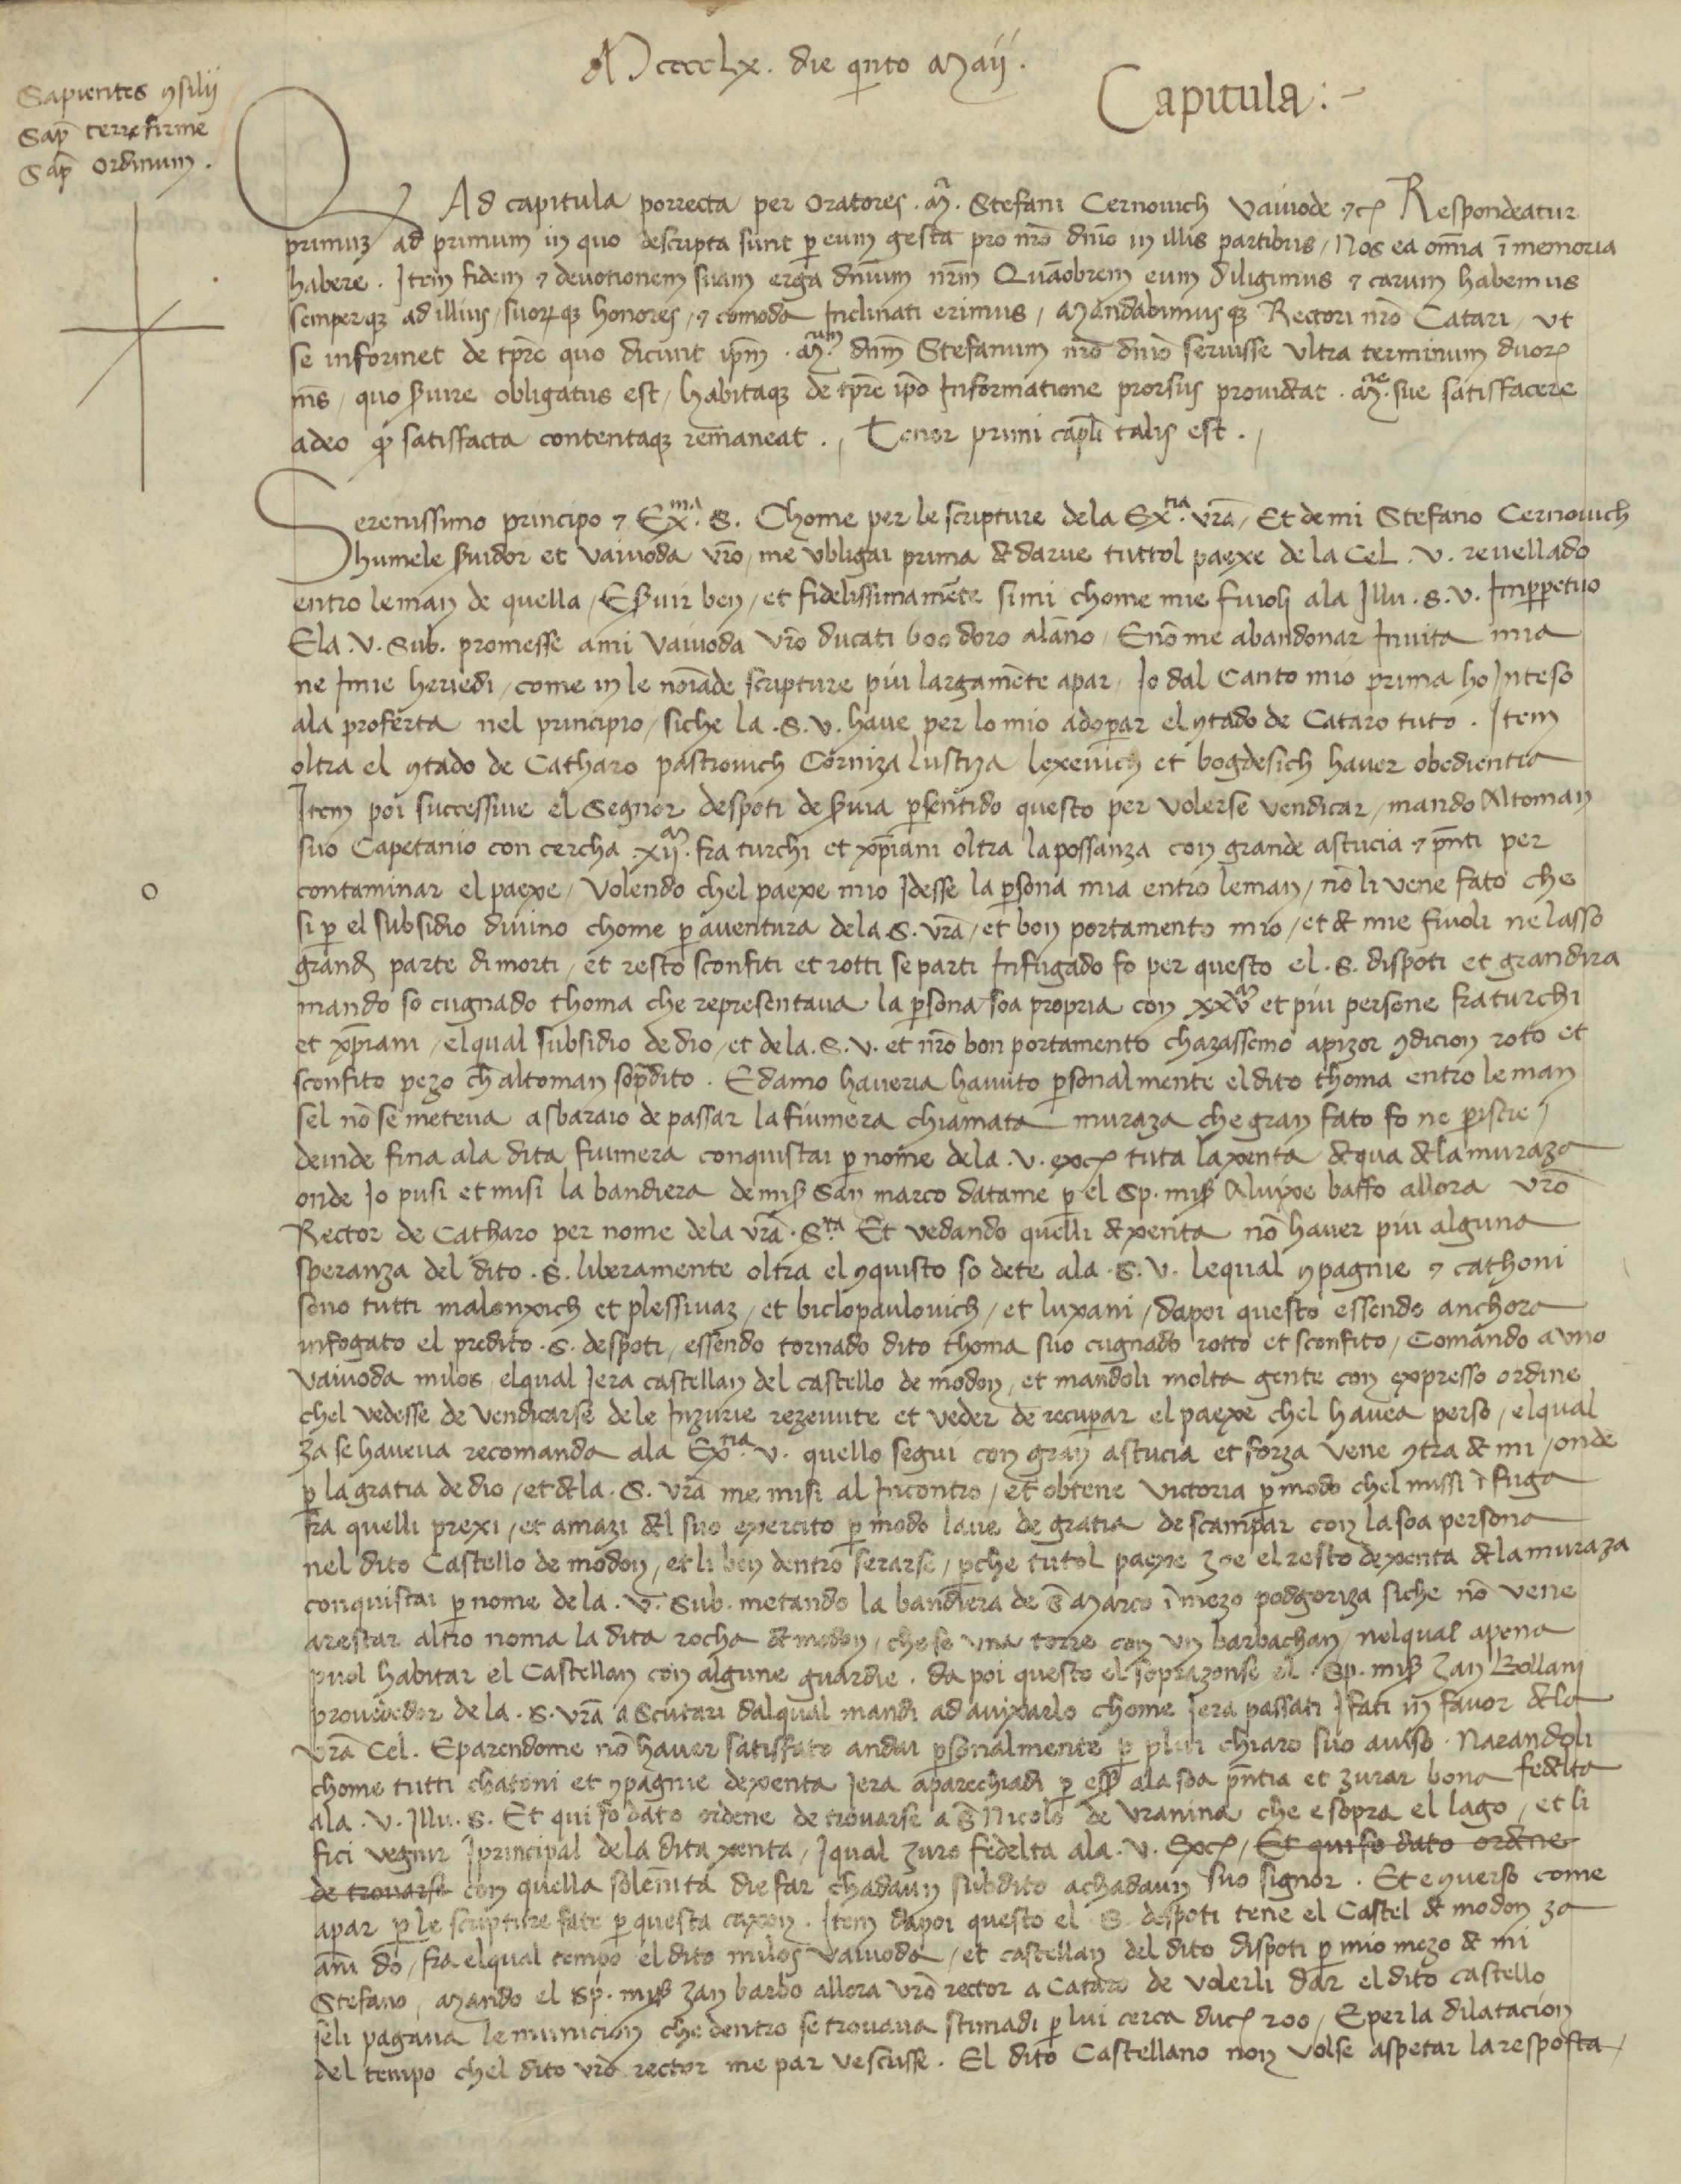 Mcccclx. die qnto Maii.
Capitula:-
Sapientes 9silii
Sap terre firme
Sap Ordinum.
Q Ad capitula porrecta per Oratores .M. Stefani Cernouich Vaiuode 7c Respondeatur
primuz ad primum in quo descripta sunt p eum gesta pro nro dnio in illis partibus / Nos ea omia i memoria
habere. Item fidem 7 deuotionem suam erga dnium nrm Quaobrem eum diligimus 7 carum habemus
semperqz ad illius / suorqz honores / 7 comoda Inclinati erimus / Mandabimusqz Rectori nro Catari / ut
se informet de tpre quo dicunt ipm .Mcum. dnm Stefanum nro dnio seruisse ultra terminum duor
ms / quo suire obligatus est / habitaqz de tpre ipo Informatione prorsus prouideat .Mtie. sue satisfacere
adeo q satisfacta contentaqz remaneat. / Tenor primi capli talis est. /
Serenissimo principo 7 Exma. S. Chome per le scripture dela Extia. vra / Et de mi Stefano Cernouich
humele suidor et Vaiuoda vro / me ubligai prima de darue tuttol paexe de la Cel. V. reuellado
entro le man de quella / E suir ben / et fidelissimamete si mi chome mie fuioli ala Illu. S. V. Imppetuo
Ela .V. Sub. promesse ami Vaiuoda Vro ducati 600 doro alano / E no me abandonar Inuita mia
ne Imie heriedi / come in le noiade scripture piu largamete apar / Io dal Canto mio prima ho Inteso
ala proferta nel principio / siche la .S. V. haue per lo mio adopar el 9tado de Cataro tuto. Item
oltra el 9tado de Catharo pastrouich Cerniza lustiza lexeuich et bogdesich hauer obedientia
Item poi successiue el Segnor despoti de Suia psentido questo per volerse vendicar / mando Altoman
suo Capetanio con cercha .xiiM. fra turchi et xpiani oltra la possanza con grande astucia 7 pnti per
contaminar el paexe / Volendo chel paexe mio Idesse la psona mia entro le man / no li vene fato che
si p el subsidio diuino chome p auentura dela S. vra / et bon portamento mio / et de mie fiuoli ne lasso
grand parte di morti / et resto sconfiti et rotti se parti Infugado fo per questo el .S. dispoti et grandira
mando so cugnado thoma che representaua la psona soa propria con xxvM et piu persone fra turchi
et xpiani / elqual subsidio de dio / et dela .S. V. et nro bon portamento chazassemo apizor 9dicion roto et
sconfito pezo ch altoman sopdito. E damo haueria hauuto psonalmente el dito thoma entro le man
sel no se meteua a sbaraio de passar la fiumera chiamata muraza che gran fato fo ne piscie /
deinde fina ala dita fiumera conquistai p nome dela .V. exc tuta la xenta de qua de la muraza
onde Io pusi et misi la bandiera de mis San marco datame p el Sp. mis Aluixe baffo allora vro
Rector de Catharo per nome dela vra .Sria Et vedando quelli de xenta no hauer piu alguna
speranza del dito .S. liberamente oltra el 9quisto so dete ala .S. V. le qual 9pagnie 7 cathoni
sono tutti malonxich et plessiuaz / et biclopaulouich / et luxani / dapoi questo essendo anchora
infogato el predito .S. despoti / essendo tornado dito thoma suo cugnado rotto et sconfito / Comando a uno
Vaiuoda milos elqual Iera castellan del castello de modon / et mandoli molta gente con expresso ordine
chel vedesse de vendicarse dele Inzurie rezeuute et veder de recupar el paexe chel hauea perso / elqual
za se haueua recomanda ala Extia. V. quello segui con gran astucia et forza vene 9tra de mi / onde
p la gratia de dio / et dela .S. vra me misi al Incontro / et obtene victoria p modo chel missi i fuga
fra quelli prexi / et amazi del suo exercito p modo laue de gratia de scampar con la soa persona
nel dito Castello de modon / et li ben dentro serarse / pche tutol paexe zoe el resto dexenta de la muraza
conquistai p nome de la .V. Sub. metando la bandiera de S Marco i mezo podgoriza siche no vene
arestar altro noma la dita rocha de modon / che se una torre con un barbachan / nelqual apena
puol habitar el Castellan con algune guardie. da poi questo el soprazonse el Sp. mis Zan Bollani
prouededor de la .S. vra a Scutari dalqual mandi ad auixarlo chome Iera passati Ifati in fauor dela
vra Cel. E parendome no hauer satisfato andai psonalmente p plui chiaro suo auiso. Narandoli
chome tutti chatoni et 9pagnie dexenta Iera aparechiadi p ess ala soa pntia et zurar bona fedelta
ala .V. Illu. S. Et qui fo dato ordene de trouarse a S Nicolo de Vranina che e sopra el lago / et li
fici vegnir Iprincipal dela dita xenta / Iqual zuro fedelta ala .V. Exc / Et qui fo dato ordene
de trouarse con quella solenita die far chadaun subdito a chadaun suo signor. Et e 9uerso come
apar p le scripture fate p questa caxon. Item dapoi questo el S despoti tene el Castel de modon za
ani do / fra elqual tempo el dito milos vaiuoda / et castellan del dito dispoti p mio mezo de mi
Stefano / Mando el Sp. mis Zan barbo allora vro rector a Cataro de volerli dar el dito castello
seli pagaua le municion che dentro se trouaua stimadi p lui cerca duc 200 / E per la dilatacion
del tempo chel dito vro rector me par vescusse. El dito Castellano non volse aspetar la resposta /